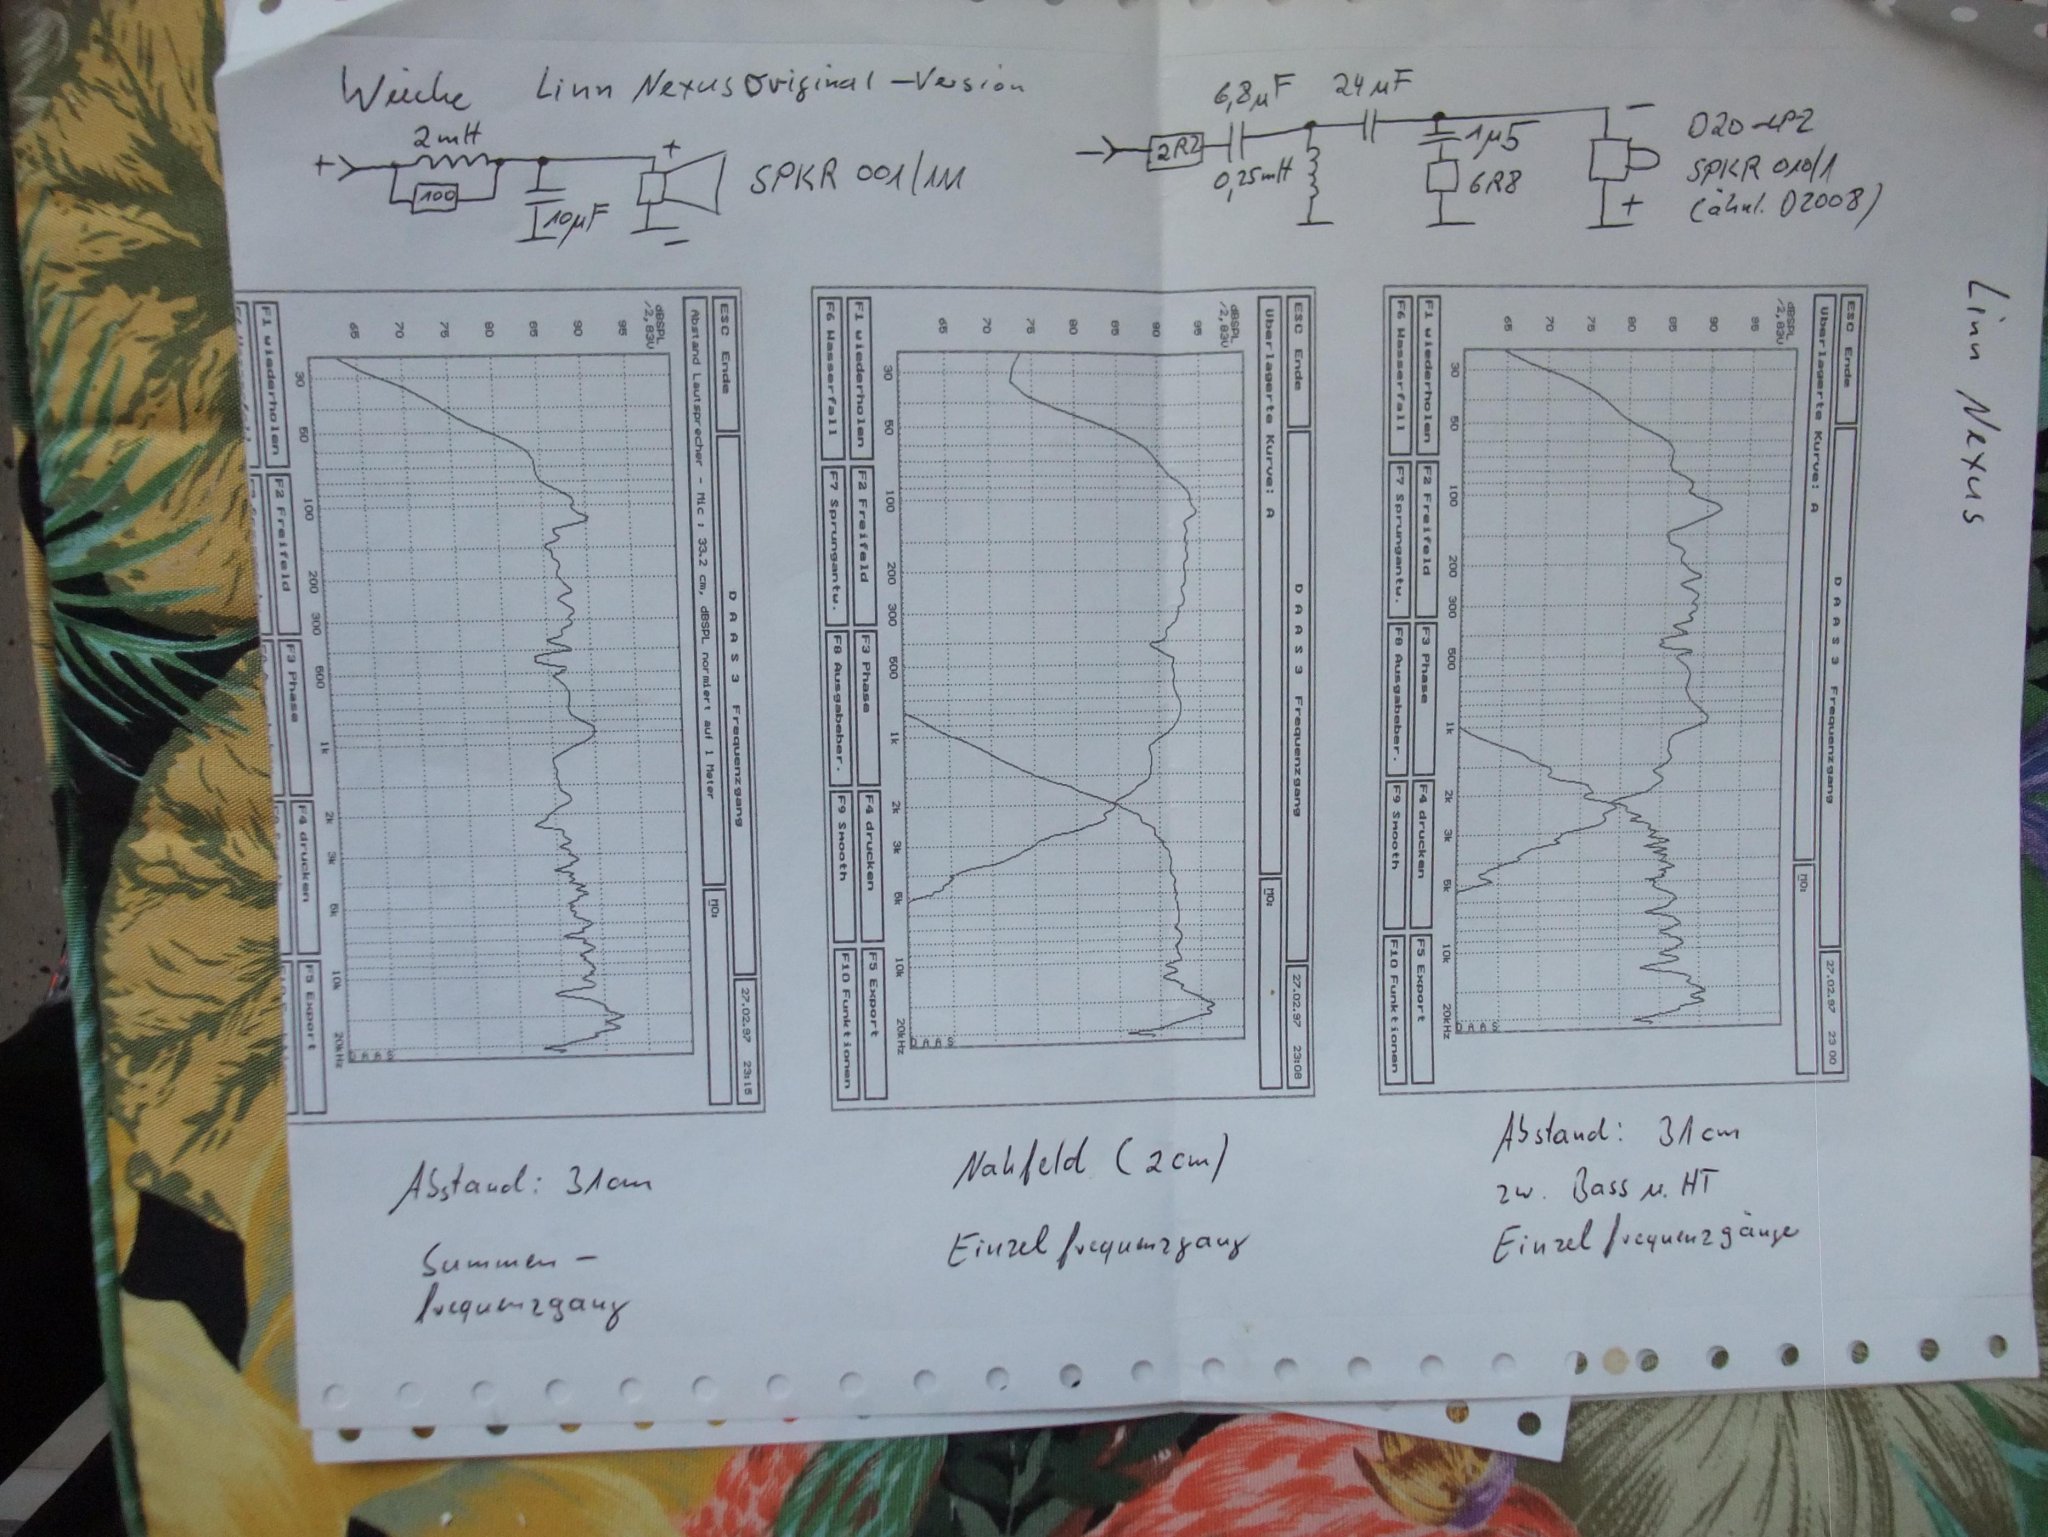 Weiche Linn Nexus Original-Version
2mH
+
100
10µF
+
-
SPKR 001/1M
-
2R2
6,8µF
0,25mH
24µF
1µ5
6R8
-
+
D20-LP2
SPKR 010/1
(ähnl. D2008)
Linn Nexus
ESC Ende
D A A S 3 Frequenzgang
27.02.97 23:15
Abstand Lautsprecher - Mic : 33.2 cm, dBSPL normiert auf 1 Meter
MO:
dBSPL
/2,83V
95
90
85
80
75
70
65
30 50 100 200 300 500 1k 2k 3k 5k 10k 20kHz
DAAS
F1 wiederholen F2 Freifeld F3 Phase F4 drucken F5 Export
ESC Ende
D A A S 3 Frequenzgang
27.02.97 23:08
Überlagerte Kurve: A
MO:
dBSPL
/2,83V
95
90
85
80
75
70
65
30 50 100 200 300 500 1k 2k 3k 5k 10k 20kHz
DAAS
F1 wiederholen F2 Freifeld F3 Phase F4 drucken F5 Export
F6 Wasserfall F7 Sprungantw. F8 Ausgabeber. F9 Smooth F10 Funktionen
ESC Ende
D A A S 3 Frequenzgang
27.02.97 23:00
Überlagerte Kurve: A
MO:
dBSPL
/2,83V
95
90
85
80
75
70
65
30 50 100 200 300 500 1k 2k 3k 5k 10k 20kHz
DAAS
F1 wiederholen F2 Freifeld F3 Phase F4 drucken F5 Export
F6 Wasserfall F7 Sprungantw. F8 Ausgabeber. F9 Smooth F10 Funktionen
Abstand: 31cm
Summen-
frequenzgang
Nahfeld (2cm)
Einzelfrequenzgang
Abstand: 31cm
zw. Bass u. HT
Einzelfrequenzgänge